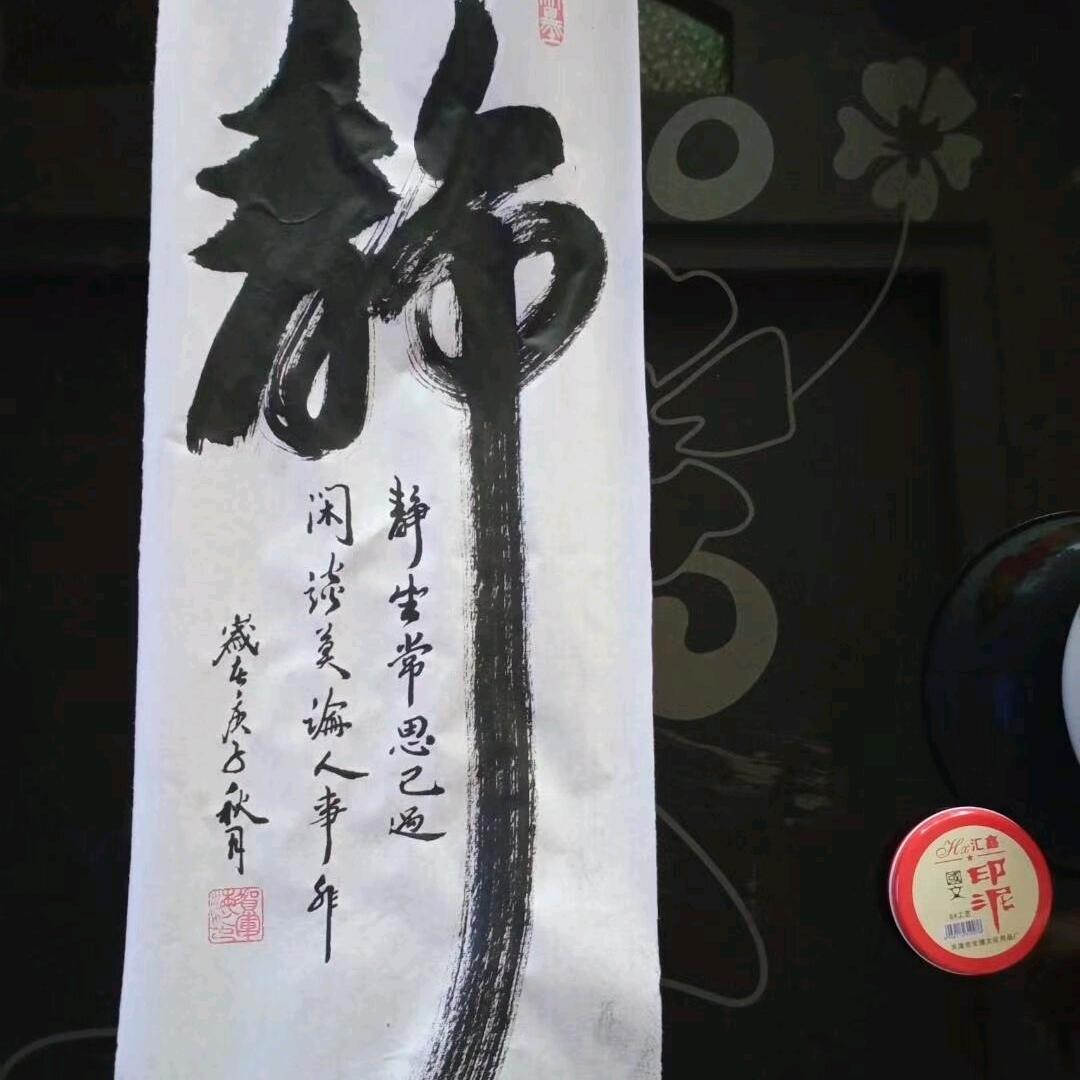 静
静坐常思己过
闲谈莫论人事非
岁在庚子秋月
Hx汇鑫
國文
印泥